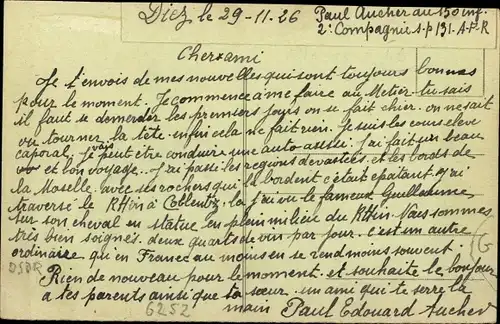 Diez, le 29-11-26
Paul Aucher au 150 inf.
2e Compagnie s.p 131. A-F-R
Cher ami
Je t'envois de mes nouvelles qui sont toujours bonnes
pour le moment. Je commence à me faire au Metier tu sais
il faut se demerder les premiers jours on se fait chier. on ne sait
ou tourner la tête enfin cela ne fait rien. Je suis les cours eleve
caporal, je vais peut être conduire une auto-assteu. j'ai fait un beau
vo et bon voyage. J'ai passé les regions devastées. et les bords de
la Moselle. avec ses rochers qui la bordent c'était epatant. j'ai
traversé le Rhin à Coblentz. la j'ai vu le fameux Guillaume
sur son cheval en statue en plein milieu du Rhin. Nous sommes
très bien soignés. deux quarts de vin par jour. c'est un autre
ordinaire qu'en France au moins on se rend moins souvent.
Rien de nouveau pour le moment. et souhaite le bonjour
a tes parents ainsi que ta sœur. un ami qui te serre la
main Paul Edouard Aucher
DSDR
6252